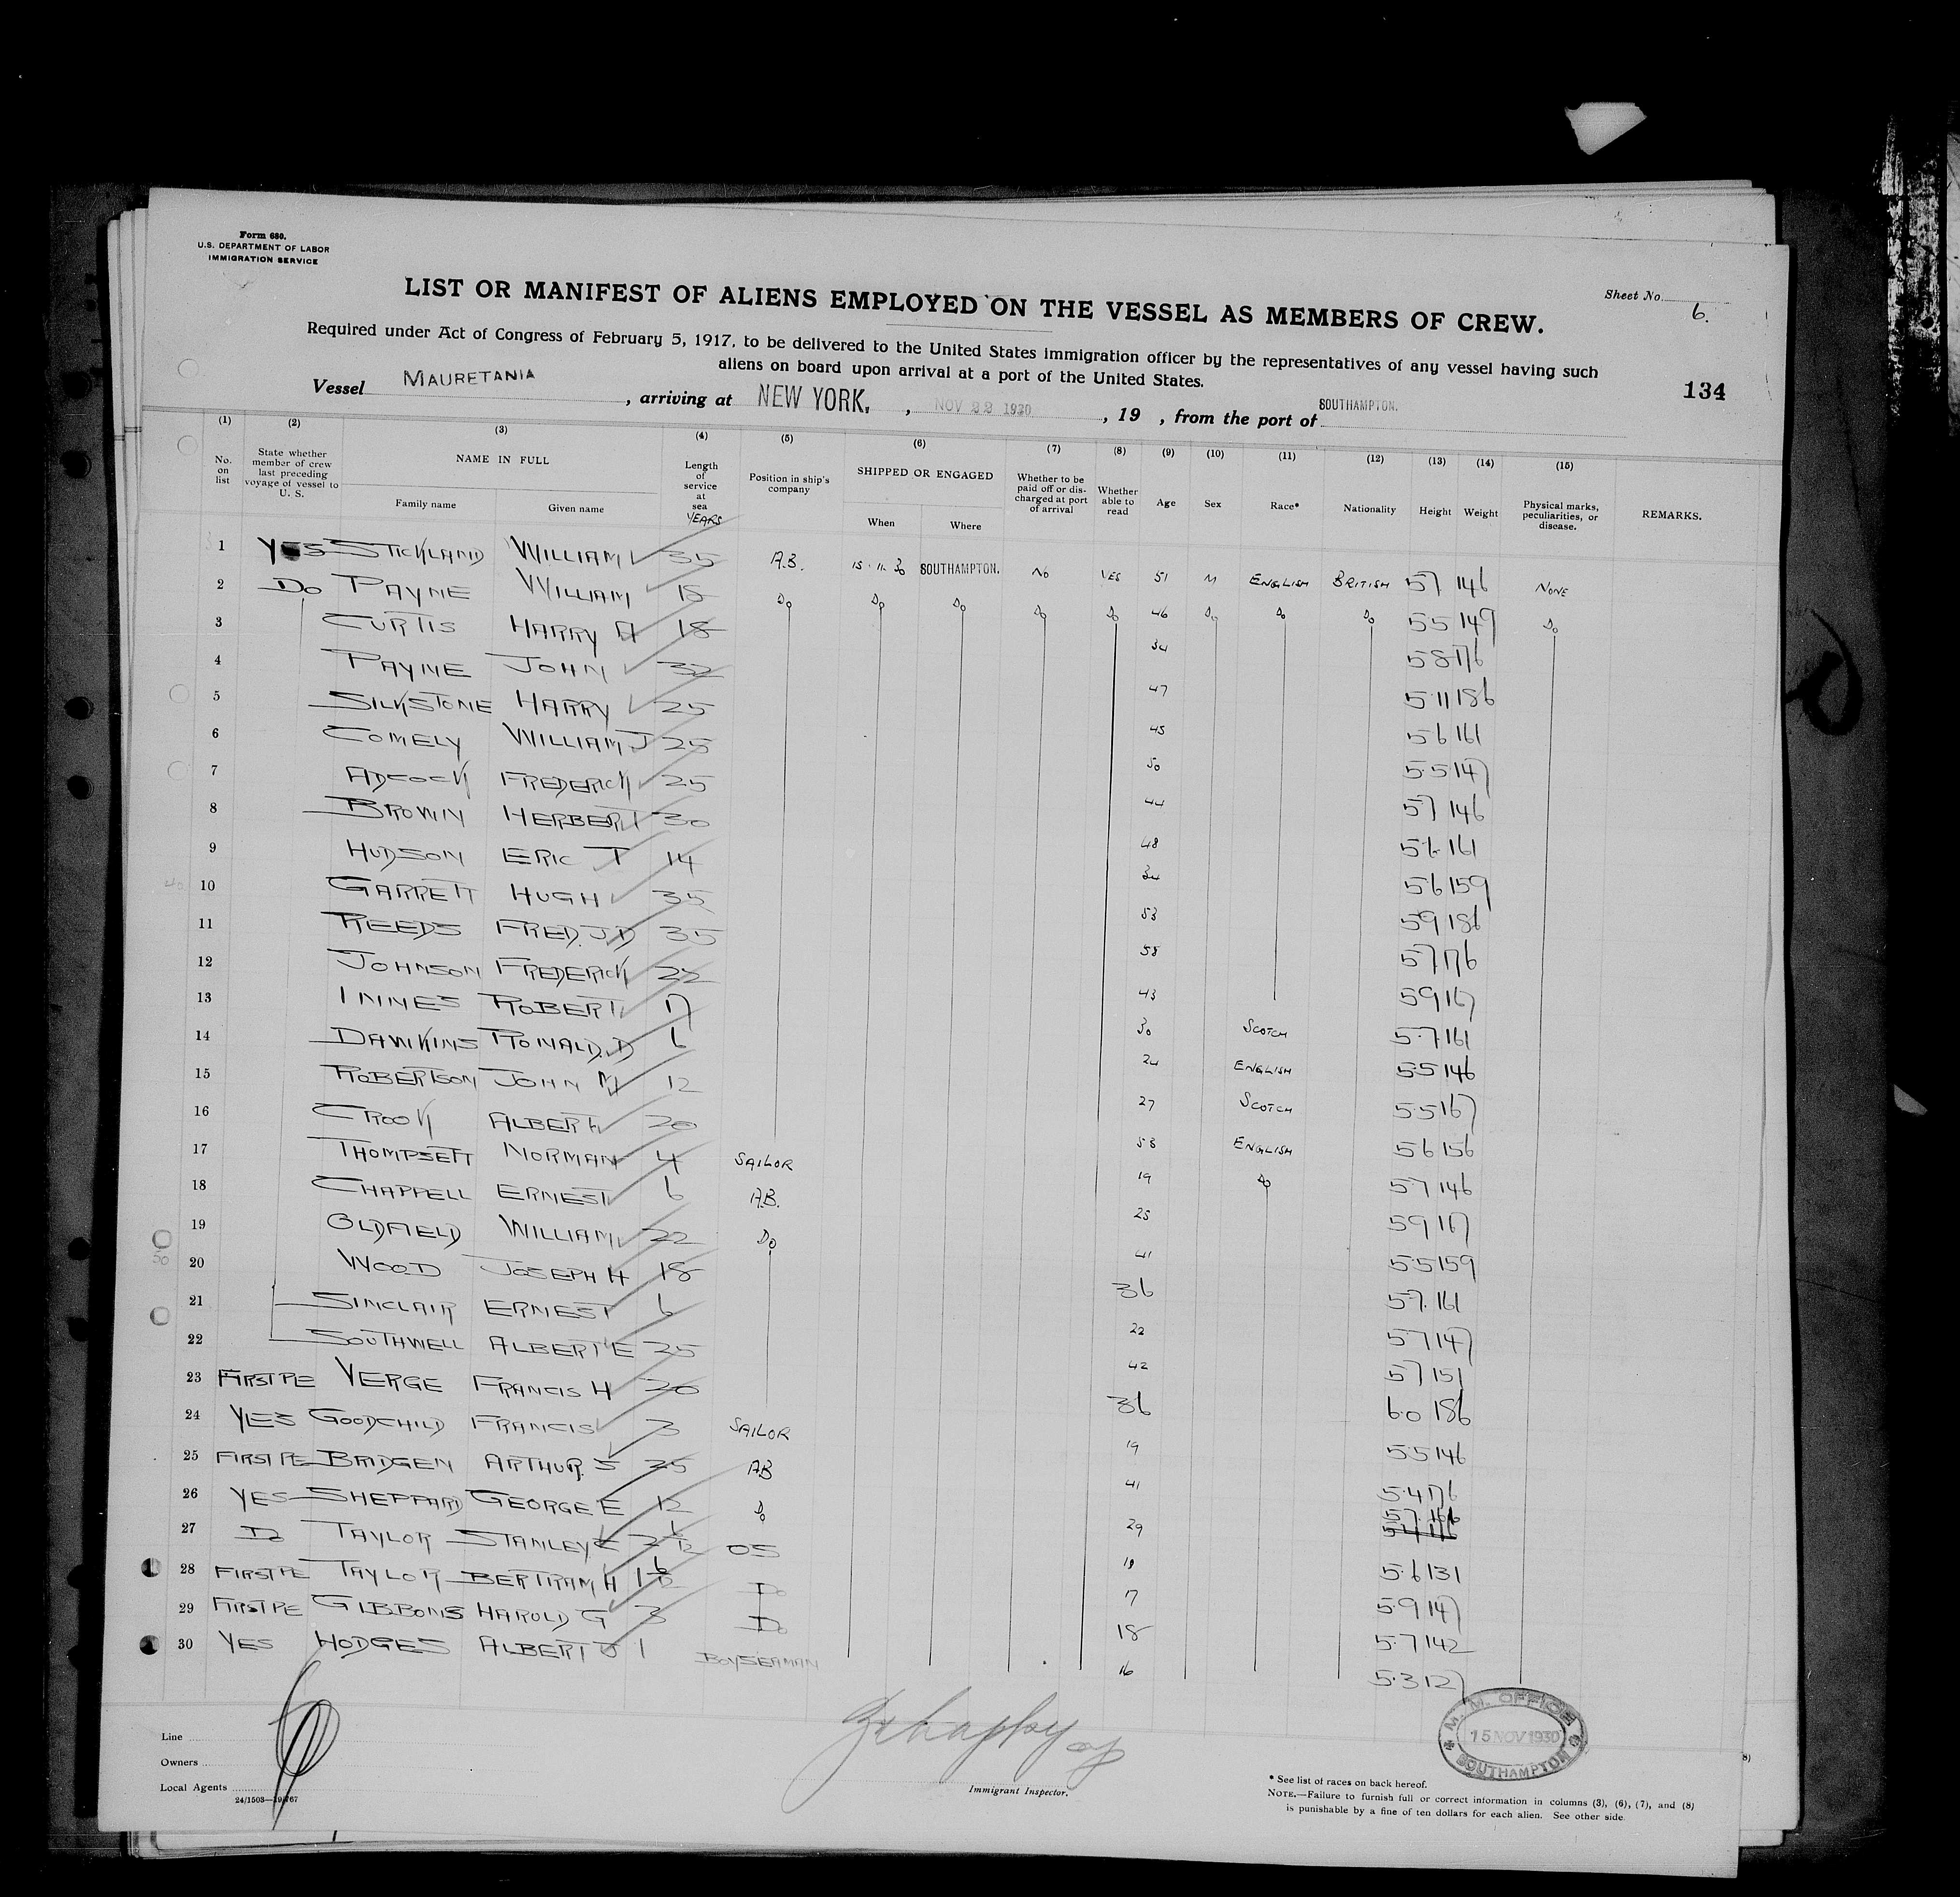 Form 680.
U.S. DEPARTMENT OF LABOR
IMMIGRATION SERVICE
LIST OR MANIFEST OF ALIENS EMPLOYED ON THE VESSEL AS MEMBERS OF CREW.
Sheet No. 6.
Required under Act of Congress of February 5, 1917, to be delivered to the United States immigration officer by the representatives of any vessel having such
aliens on board upon arrival at a port of the United States.
134
Vessel MAURETANIA, arriving at NEW YORK, , NOV 22 1930, 19 , from the port of SOUTHAMPTON.
(1) (2) (3) (4) (5) (6) (7) (8) (9) (10) (11) (12) (13) (14) (15)
No. on list State whether member of crew last preceding voyage of vessel to U. S. NAME IN FULL Family name Given name Length of service at sea YEARS Position in ship's company SHIPPED OR ENGAGED When Where Whether to be paid off or discharged at port of arrival Whether able to read Age Sex Race* Nationality Height Weight Physical marks, peculiarities, or disease. REMARKS.
1 YES STICKLAND WILLIAM 35 A.B. 15.11.30 SOUTHAMPTON. NO YES 51 M ENGLISH BRITISH 5 7 146 NONE
2 Do PAYNE WILLIAM 18 Do Do Do Do Do 46 Do Do Do 5 5 149 Do
3 CURTIS HARRY A 18 34 5 8 176
4 PAYNE JOHN 32 47 5 11 186
5 SILKSTONE HARRY 25 45 5 6 161
6 COMELY WILLIAM J 25 50 5 5 147
7 ADCOCK FREDERICK 25 44 5 7 146
8 BROWN HERBERT 30 48 5 6 161
9 HUDSON ERIC T 14 34 5 6 159
10 GARRETT HUGH 35 53 5 9 186
11 REEDS FRED. J D 35 58 5 7 176
12 JOHNSON FREDERICK 22 43 5 9 167
13 INNES ROBERT 17 30 SCOTCH 5.7 161
14 DAWKINS RONALD. D 6 24 ENGLISH 5 5 146
15 ROBERTSON JOHN M 12 27 SCOTCH 5.5 167
16 CROOK ALBERT 20 53 ENGLISH 5 6 156
17 THOMPSETT NORMAN 4 SAILOR 19 Do 5 7 146
18 CHAPPELL ERNEST 6 A.B. 25 5 9 167
19 OLDFIELD WILLIAM 22 Do 41 5 5 159
20 WOOD JOSEPH H 18 36 5 7. 161
21 SINCLAIR ERNEST 6 22 5 7 147
22 SOUTHWELL ALBERT E 25 42 5 7 151
23 FIRST PE VERGE FRANCIS H 20 36 6.0 186
24 YES GOODCHILD FRANCIS 3 SAILOR 19 5.5 146
25 FIRST PE BRIDGEN ARTHUR. S 25 AB 41 5.4 176
26 YES SHEPPARD GEORGE E 12 Do 29 5 7. 166
27 Do TAYLOR STANLEY 2 6/12 OS 18 5.6 131
28 FIRST PE TAYLOR BERTRAM H 1 6/12 Do 17 5.9 147
29 FIRST PE GIBBONS HAROLD G 3 Do 18 5.7 142
30 YES HODGES ALBERT J 1 BOY SEAMAN 16 5.3 127
M. M. OFFICE
15 NOV 1930
SOUTHAMPTON
Line
Owners
Local Agents
Immigrant Inspector.
* See list of races on back hereof.
NOTE.—Failure to furnish full or correct information in columns (3), (6), (7), and (8)
is punishable by a fine of ten dollars for each alien. See other side.